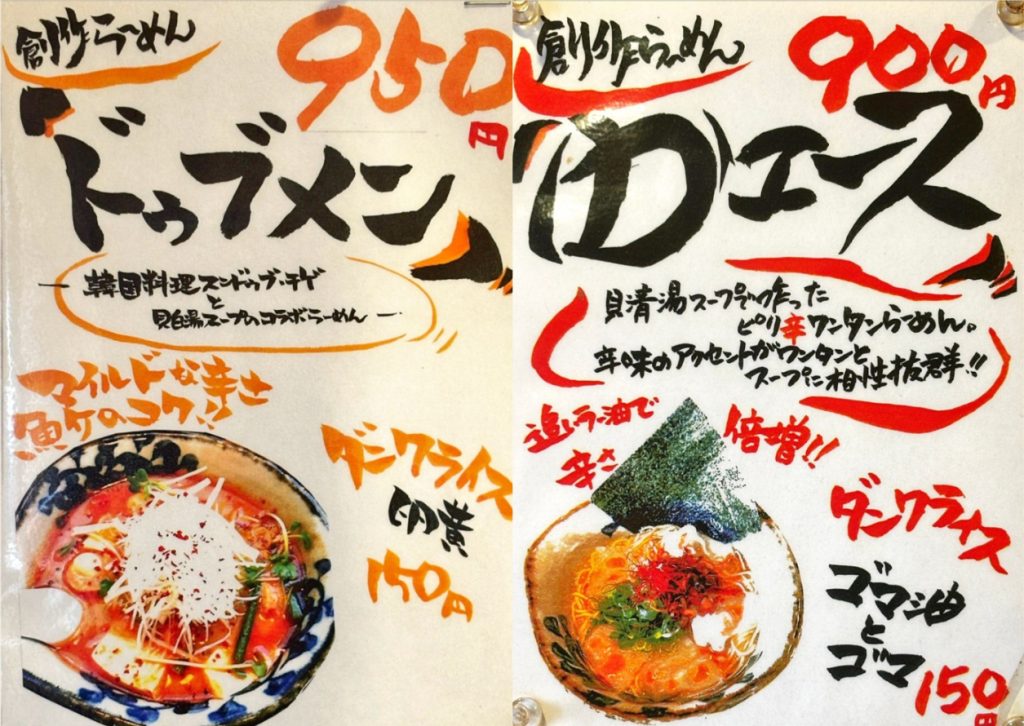 創作らーめん
950円
ドゥブメン
韓国料理スンドゥブ・チゲ
と
貝白湯スープのコラボらーめん
マイルドな辛さ
魚介のコク!!
ダンクライス
卵黄
150円
創作らーめん
900円
(D)エース
貝清湯スープで作った
ピリ辛ワンタンらーめん。
辛味のアクセントがワンタンと
スープに相性抜群!!
追いラー油で
辛さ
倍増!!
ダンクライス
ゴマ油
と
ゴマ
150円